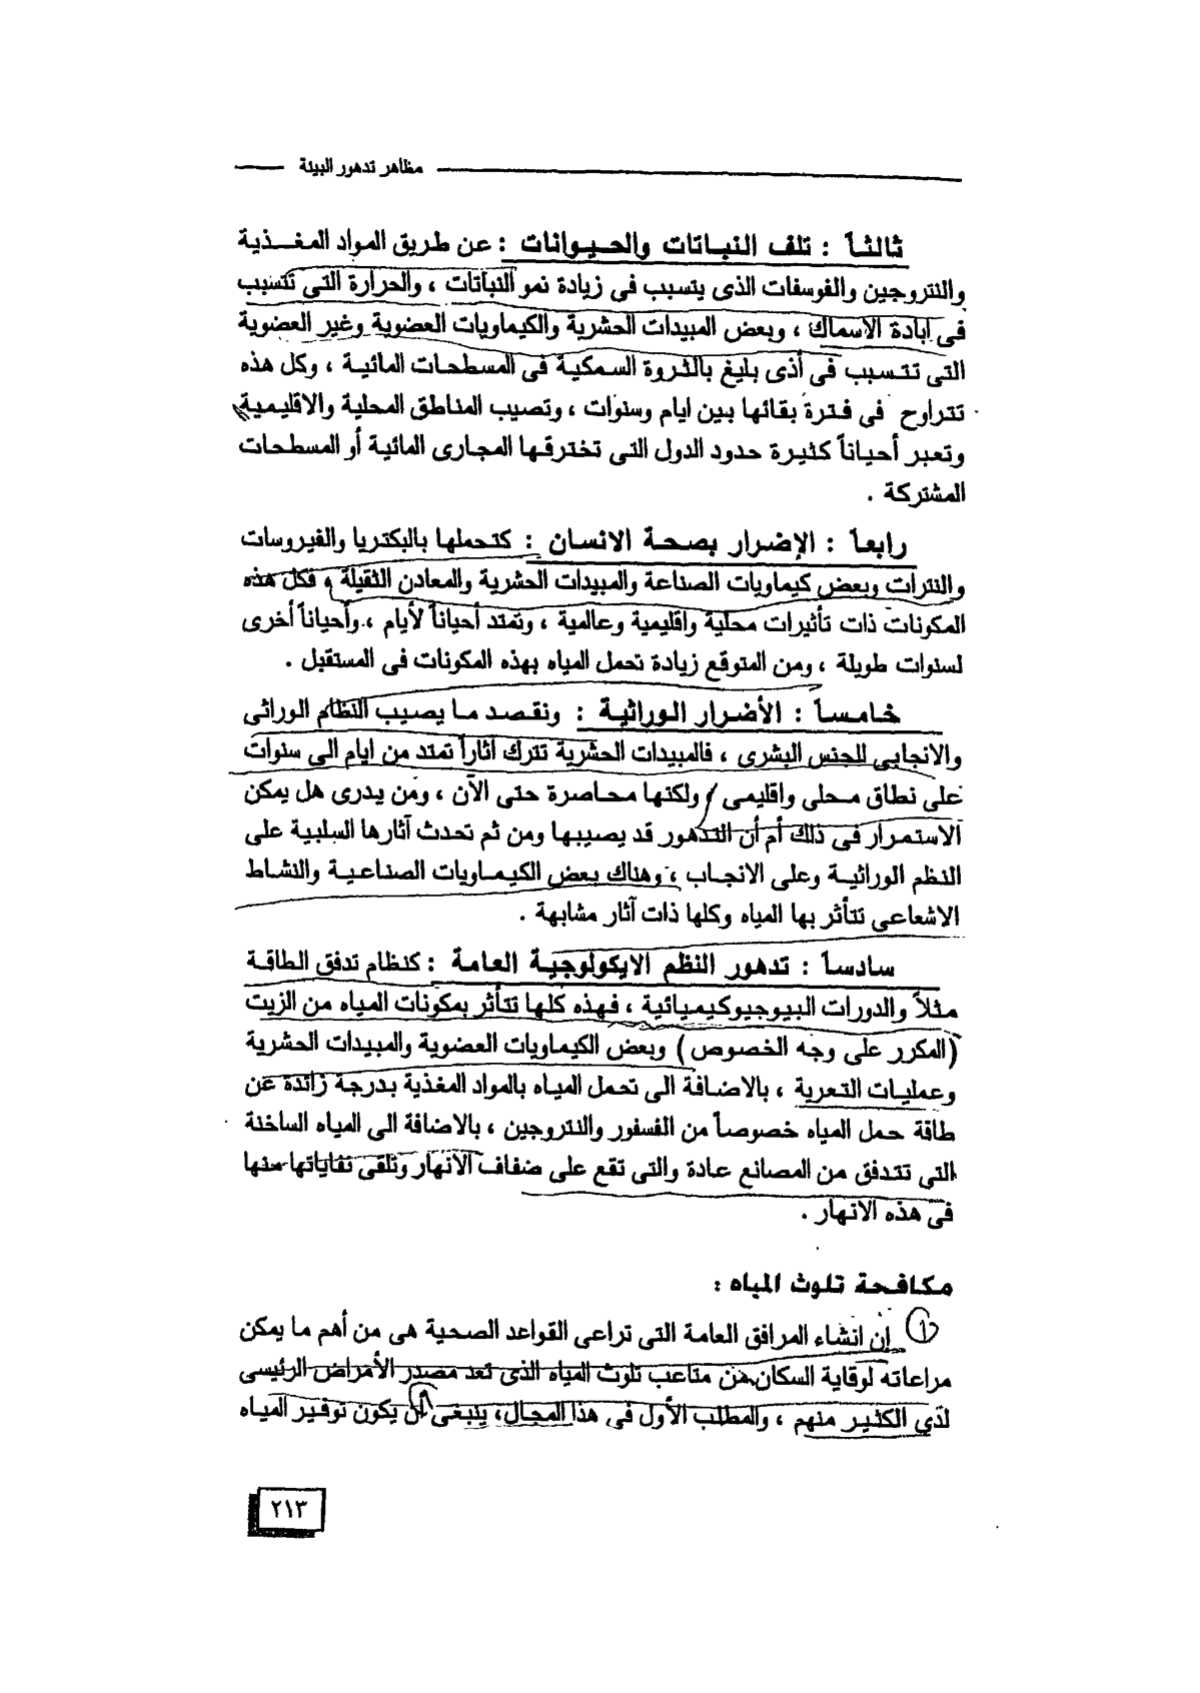 مظاهر تدهور البيئة
ثالثاً : تلف النباتات والحيوانات : عن طريق المواد المغذية
والنتروجين والفوسفات الذى يتسبب فى زيادة نمو النباتات ، والحرارة التى تتسبب
فى ابادة الاسماك ، وبعض المبيدات الحشرية والكيماويات العضوية وغير العضوية
التى تتسبب فى أذى بليغ بالثروة السمكية فى المسطحات المائية ، وكل هذه
تتراوح فى فترة بقائها بين ايام وسنوات ، وتصيب المناطق المحلية والاقليمية
وتعبر أحياناً كثيرة حدود الدول التى تخترقها المجارى المائية أو المسطحات
المشتركة .
رابعاً : الإضرار بصحة الانسان : كتحملها بالبكتريا والفيروسات
والنترات وبعض كيماويات الصناعة والمبيدات الحشرية والمعادن الثقيلة ، فكل هذه
المكونات ذات تأثيرات محلية واقليمية وعالمية ، وتمتد أحياناً لأيام ، وأحياناً أخرى
لسنوات طويلة ، ومن المتوقع زيادة تحمل المياه بهذه المكونات فى المستقبل .
خامساً : الأضرار الوراثية : ونقصد ما يصيب النظام الوراثى
والانجابى للجنس البشرى ، فالمبيدات الحشرية تترك آثاراً تمتد من ايام الى سنوات
على نطاق محلى واقليمى ولكنها محاصرة حتى الآن ، ومن يدرى هل يمكن
الاستمرار فى ذلك أم أن التدهور قد يصيبها ومن ثم تحدث آثارها السلبية على
النظم الوراثية وعلى الانجاب ، وهناك بعض الكيماويات الصناعية والنشاط
الاشعاعى تتأثر بها المياه وكلها ذات آثار مشابهة .
سادساً : تدهور النظم الايكولوجية العامة : كنظام تدفق الطاقة
مثلاً والدورات البيوجيوكيميائية ، فهذه كلها تتأثر بمكونات المياه من الزيت
(المكرر على وجه الخصوص) وبعض الكيماويات العضوية والمبيدات الحشرية
وعمليات التعرية ، بالاضافة الى تحمل المياه بالمواد المغذية بدرجة زائدة عن
طاقة حمل المياه خصوصاً من الفسفور والنتروجين ، بالاضافة الى المياه الساخنة
التى تتدفق من المصانع عادة والتى تقع على ضفاف الانهار وتلقى نفاياتها منها
فى هذه الانهار .
مكافحة تلوث المياه :
١ إن انشاء المرافق العامة التى تراعى القواعد الصحية هى من أهم ما يمكن
مراعاته لوقاية السكان من متاعب تلوث المياه الذى تعد مصدر الأمراض الرئيسى
لدى الكثير منهم ، والمطلب الأول فى هذا المجال، ينبغى أن يكون توفير المياه
٢١٣